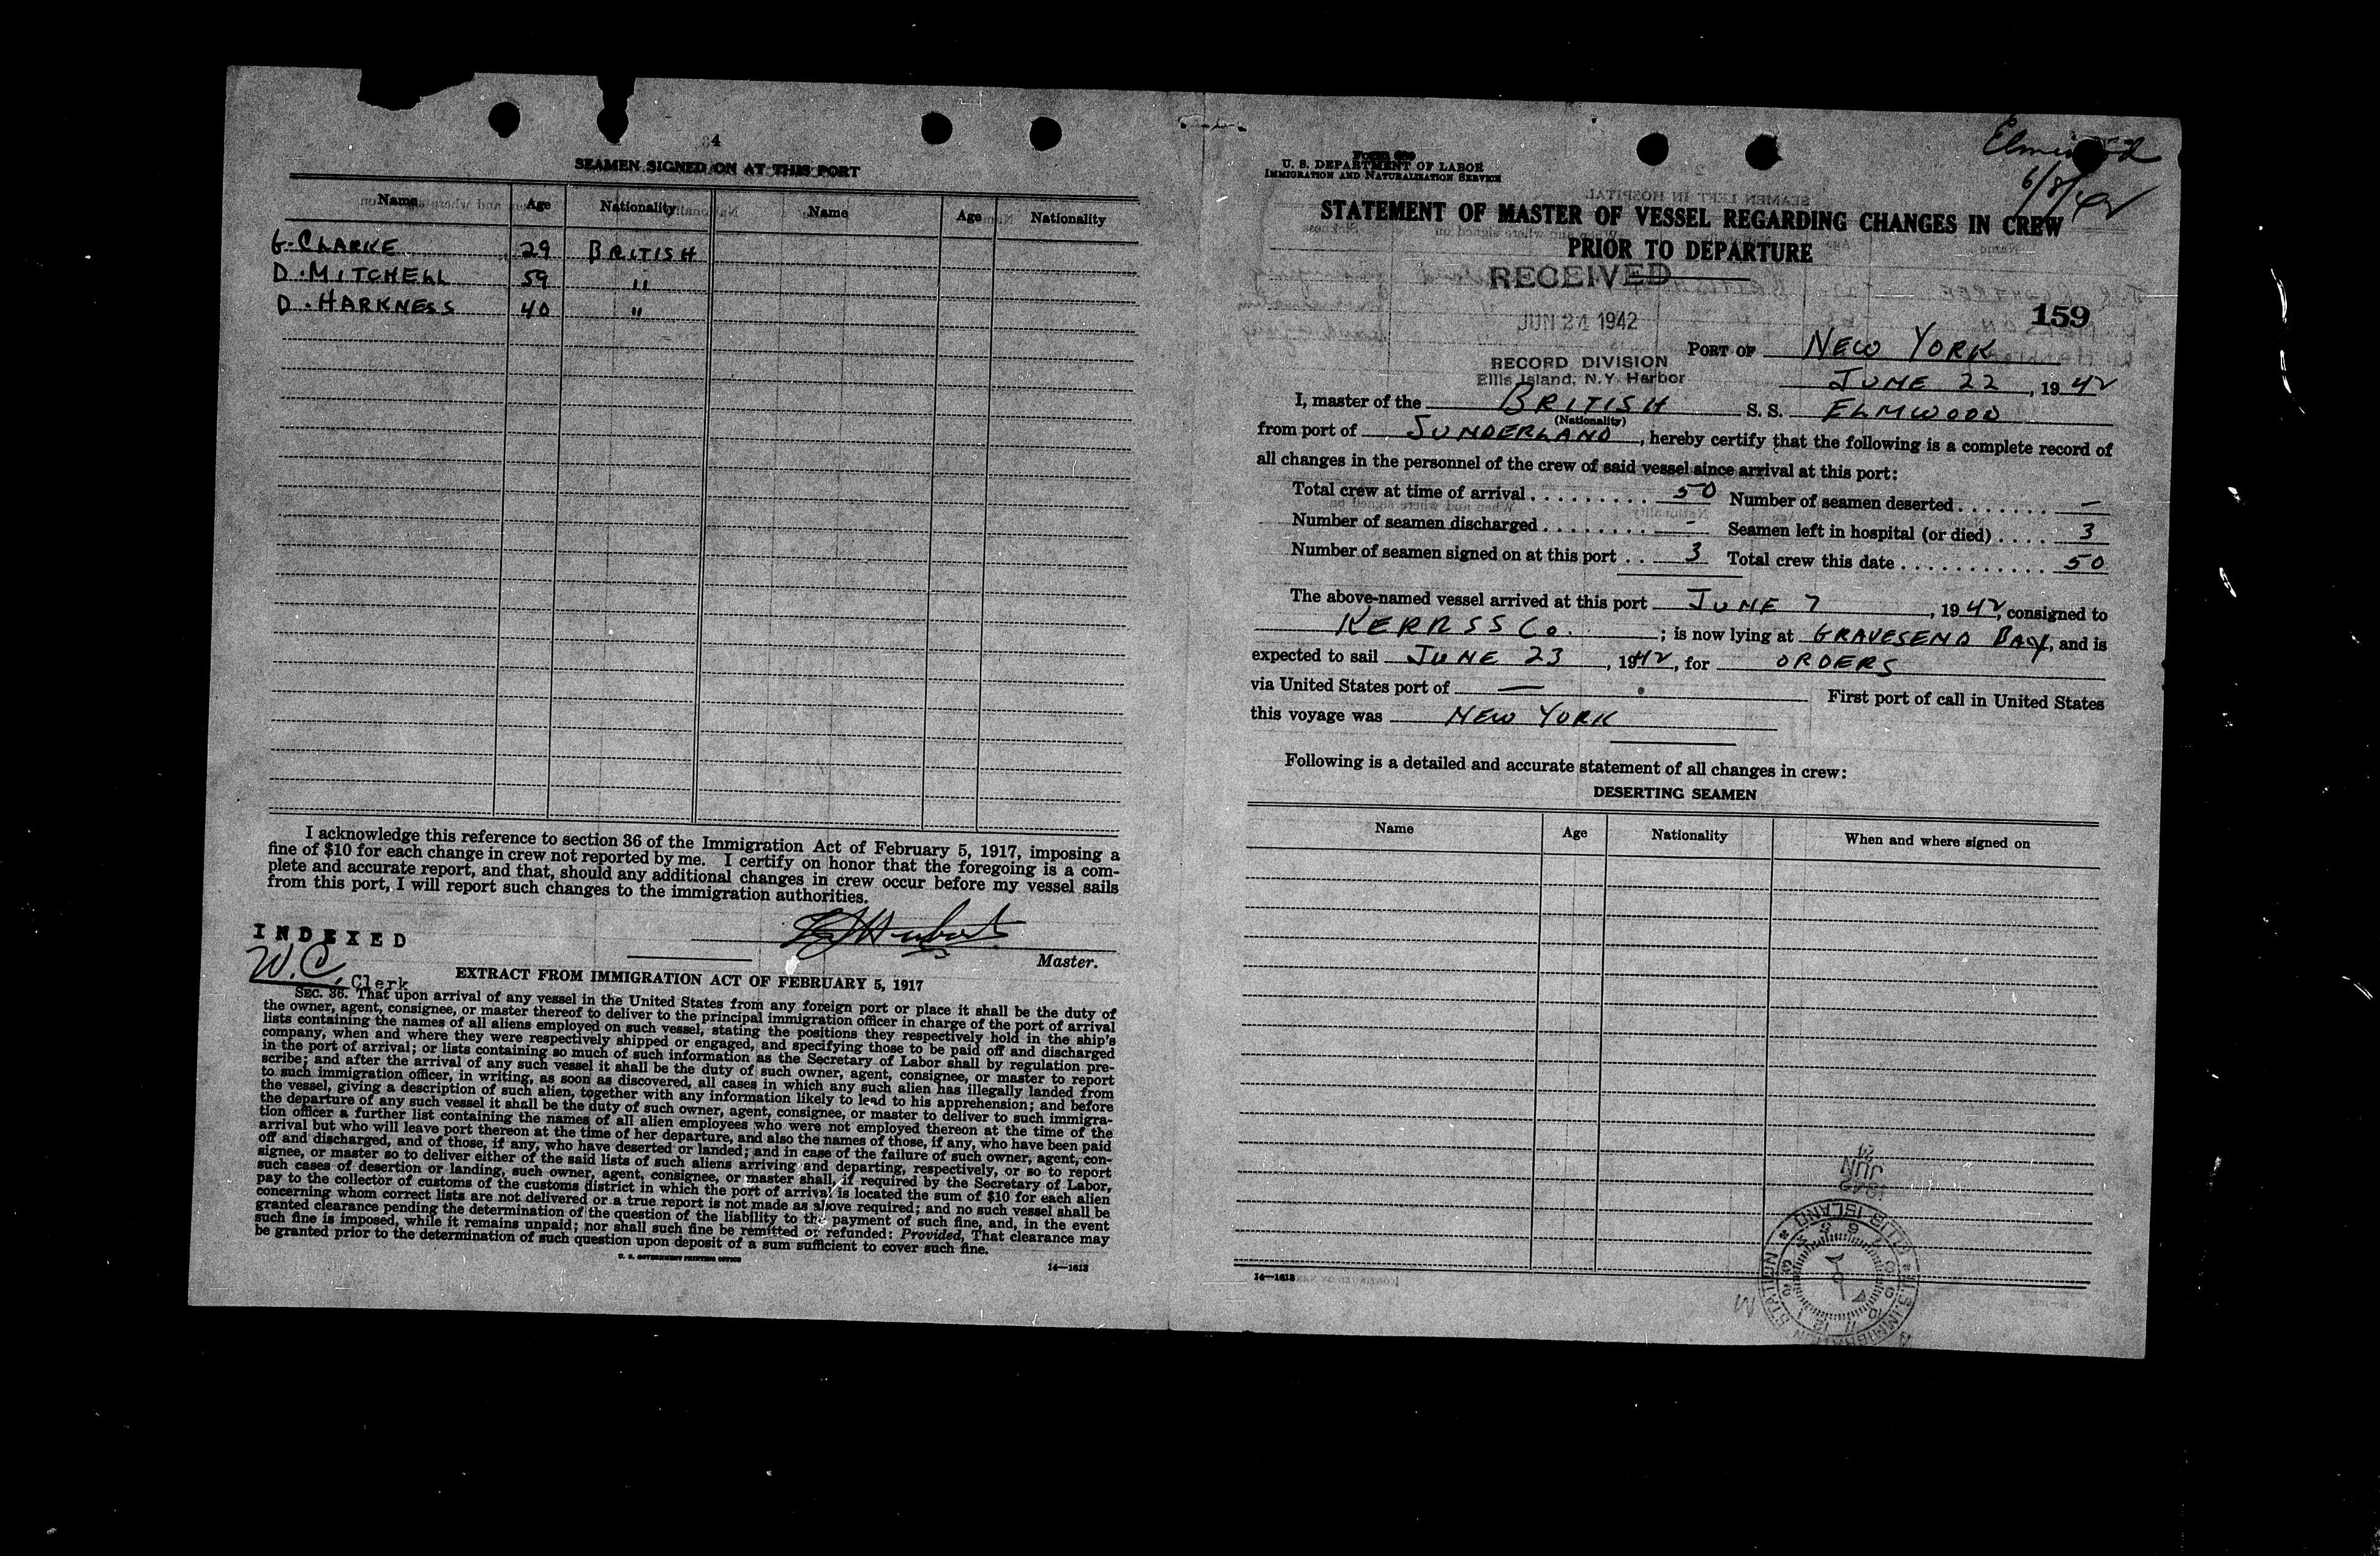 4
SEAMEN SIGNED ON AT THIS PORT
Name Age Nationality Name Age Nationality
G. CLARKE 29 BRITISH
D. MITCHELL 59 "
D. HARKNESS 40 "
I acknowledge this reference to section 36 of the Immigration Act of February 5, 1917, imposing a
fine of $10 for each change in crew not reported by me. I certify on honor that the foregoing is a com-
plete and accurate report, and that, should any additional changes in crew occur before my vessel sails
from this port, I will report such changes to the immigration authorities.
INDEXED
Master.
W.C. Clerk
EXTRACT FROM IMMIGRATION ACT OF FEBRUARY 5, 1917
SEC. 36. That upon arrival of any vessel in the United States from any foreign port or place it shall be the duty of
the owner, agent, consignee, or master thereof to deliver to the principal immigration officer in charge of the port of arrival
lists containing the names of all aliens employed on such vessel, stating the positions they respectively hold in the ship's
company, when and where they were respectively shipped or engaged, and specifying those to be paid off and discharged
in the port of arrival; or lists containing so much of such information as the Secretary of Labor shall by regulation pre-
scribe; and after the arrival of any such vessel it shall be the duty of such owner, agent, consignee, or master to report
to such immigration officer, in writing, as soon as discovered, all cases in which any such alien has illegally landed from
the vessel, giving a description of such alien, together with any information likely to lead to his apprehension; and before
the departure of any such vessel it shall be the duty of such owner, agent, consignee, or master to deliver to such immigra-
tion officer a further list containing the names of all alien employees who were not employed thereon at the time of the
arrival but who will leave port thereon at the time of her departure, and also the names of those, if any, who have been paid
off and discharged, and of those, if any, who have deserted or landed; and in case of the failure of such owner, agent, con-
signee, or master so to deliver either of the said lists of such aliens arriving and departing, respectively, or so to report
such cases of desertion or landing, such owner, agent, consignee, or master shall, if required by the Secretary of Labor,
pay to the collector of customs of the customs district in which the port of arrival is located the sum of $10 for each alien
concerning whom correct lists are not delivered or a true report is not made as above required; and no such vessel shall be
granted clearance pending the determination of the question of the liability to the payment of such fine, and, in the event
such fine is imposed, while it remains unpaid; nor shall such fine be remitted or refunded: Provided, That clearance may
be granted prior to the determination of such question upon deposit of a sum sufficient to cover such fine.
U. S. GOVERNMENT PRINTING OFFICE 14—1613
Elmwood
6/8/42
U. S. DEPARTMENT OF LABOR
IMMIGRATION AND NATURALIZATION SERVICE
STATEMENT OF MASTER OF VESSEL REGARDING CHANGES IN CREW
PRIOR TO DEPARTURE
RECEIVED
JUN 24 1942
RECORD DIVISION
Ellis Island, N.Y. Harbor
159
PORT OF NEW YORK
JUNE 22, 1942
I, master of the BRITISH S. S. ELMWOOD
(Nationality)
from port of SUNDERLAND, hereby certify that the following is a complete record of
all changes in the personnel of the crew of said vessel since arrival at this port:
Total crew at time of arrival . . . . . . . . . 50 Number of seamen deserted . . . . . . . —
Number of seamen discharged . . . . . . . . - Seamen left in hospital (or died) . . . . 3
Number of seamen signed on at this port . . 3 Total crew this date . . . . . . . . . . . . 50
The above-named vessel arrived at this port JUNE 7, 1942, consigned to
KERR SS Co. ; is now lying at GRAVESEND BAY, and is
expected to sail JUNE 23, 1942, for ORDERS
via United States port of — First port of call in United States
this voyage was NEW YORK
Following is a detailed and accurate statement of all changes in crew:
DESERTING SEAMEN
Name Age Nationality When and where signed on
14—1613
1942
JUN
U.S. IMMIGRATION STATION ELLIS ISLAND